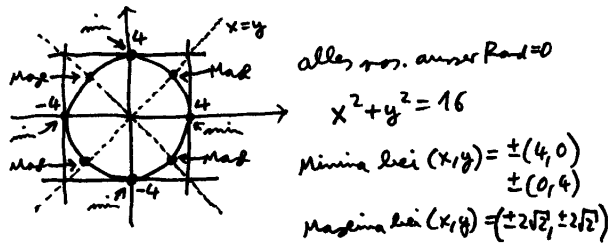 min
4
x=y
Max
Max
-4
4
min
min
Max
Max
min
-4
alles pos. ausser Rand=0
x²+y²=16
Minima bei (x,y)= ±(4,0)
±(0,4)
Maxima bei (x,y)=(±2√2, ±2√2)